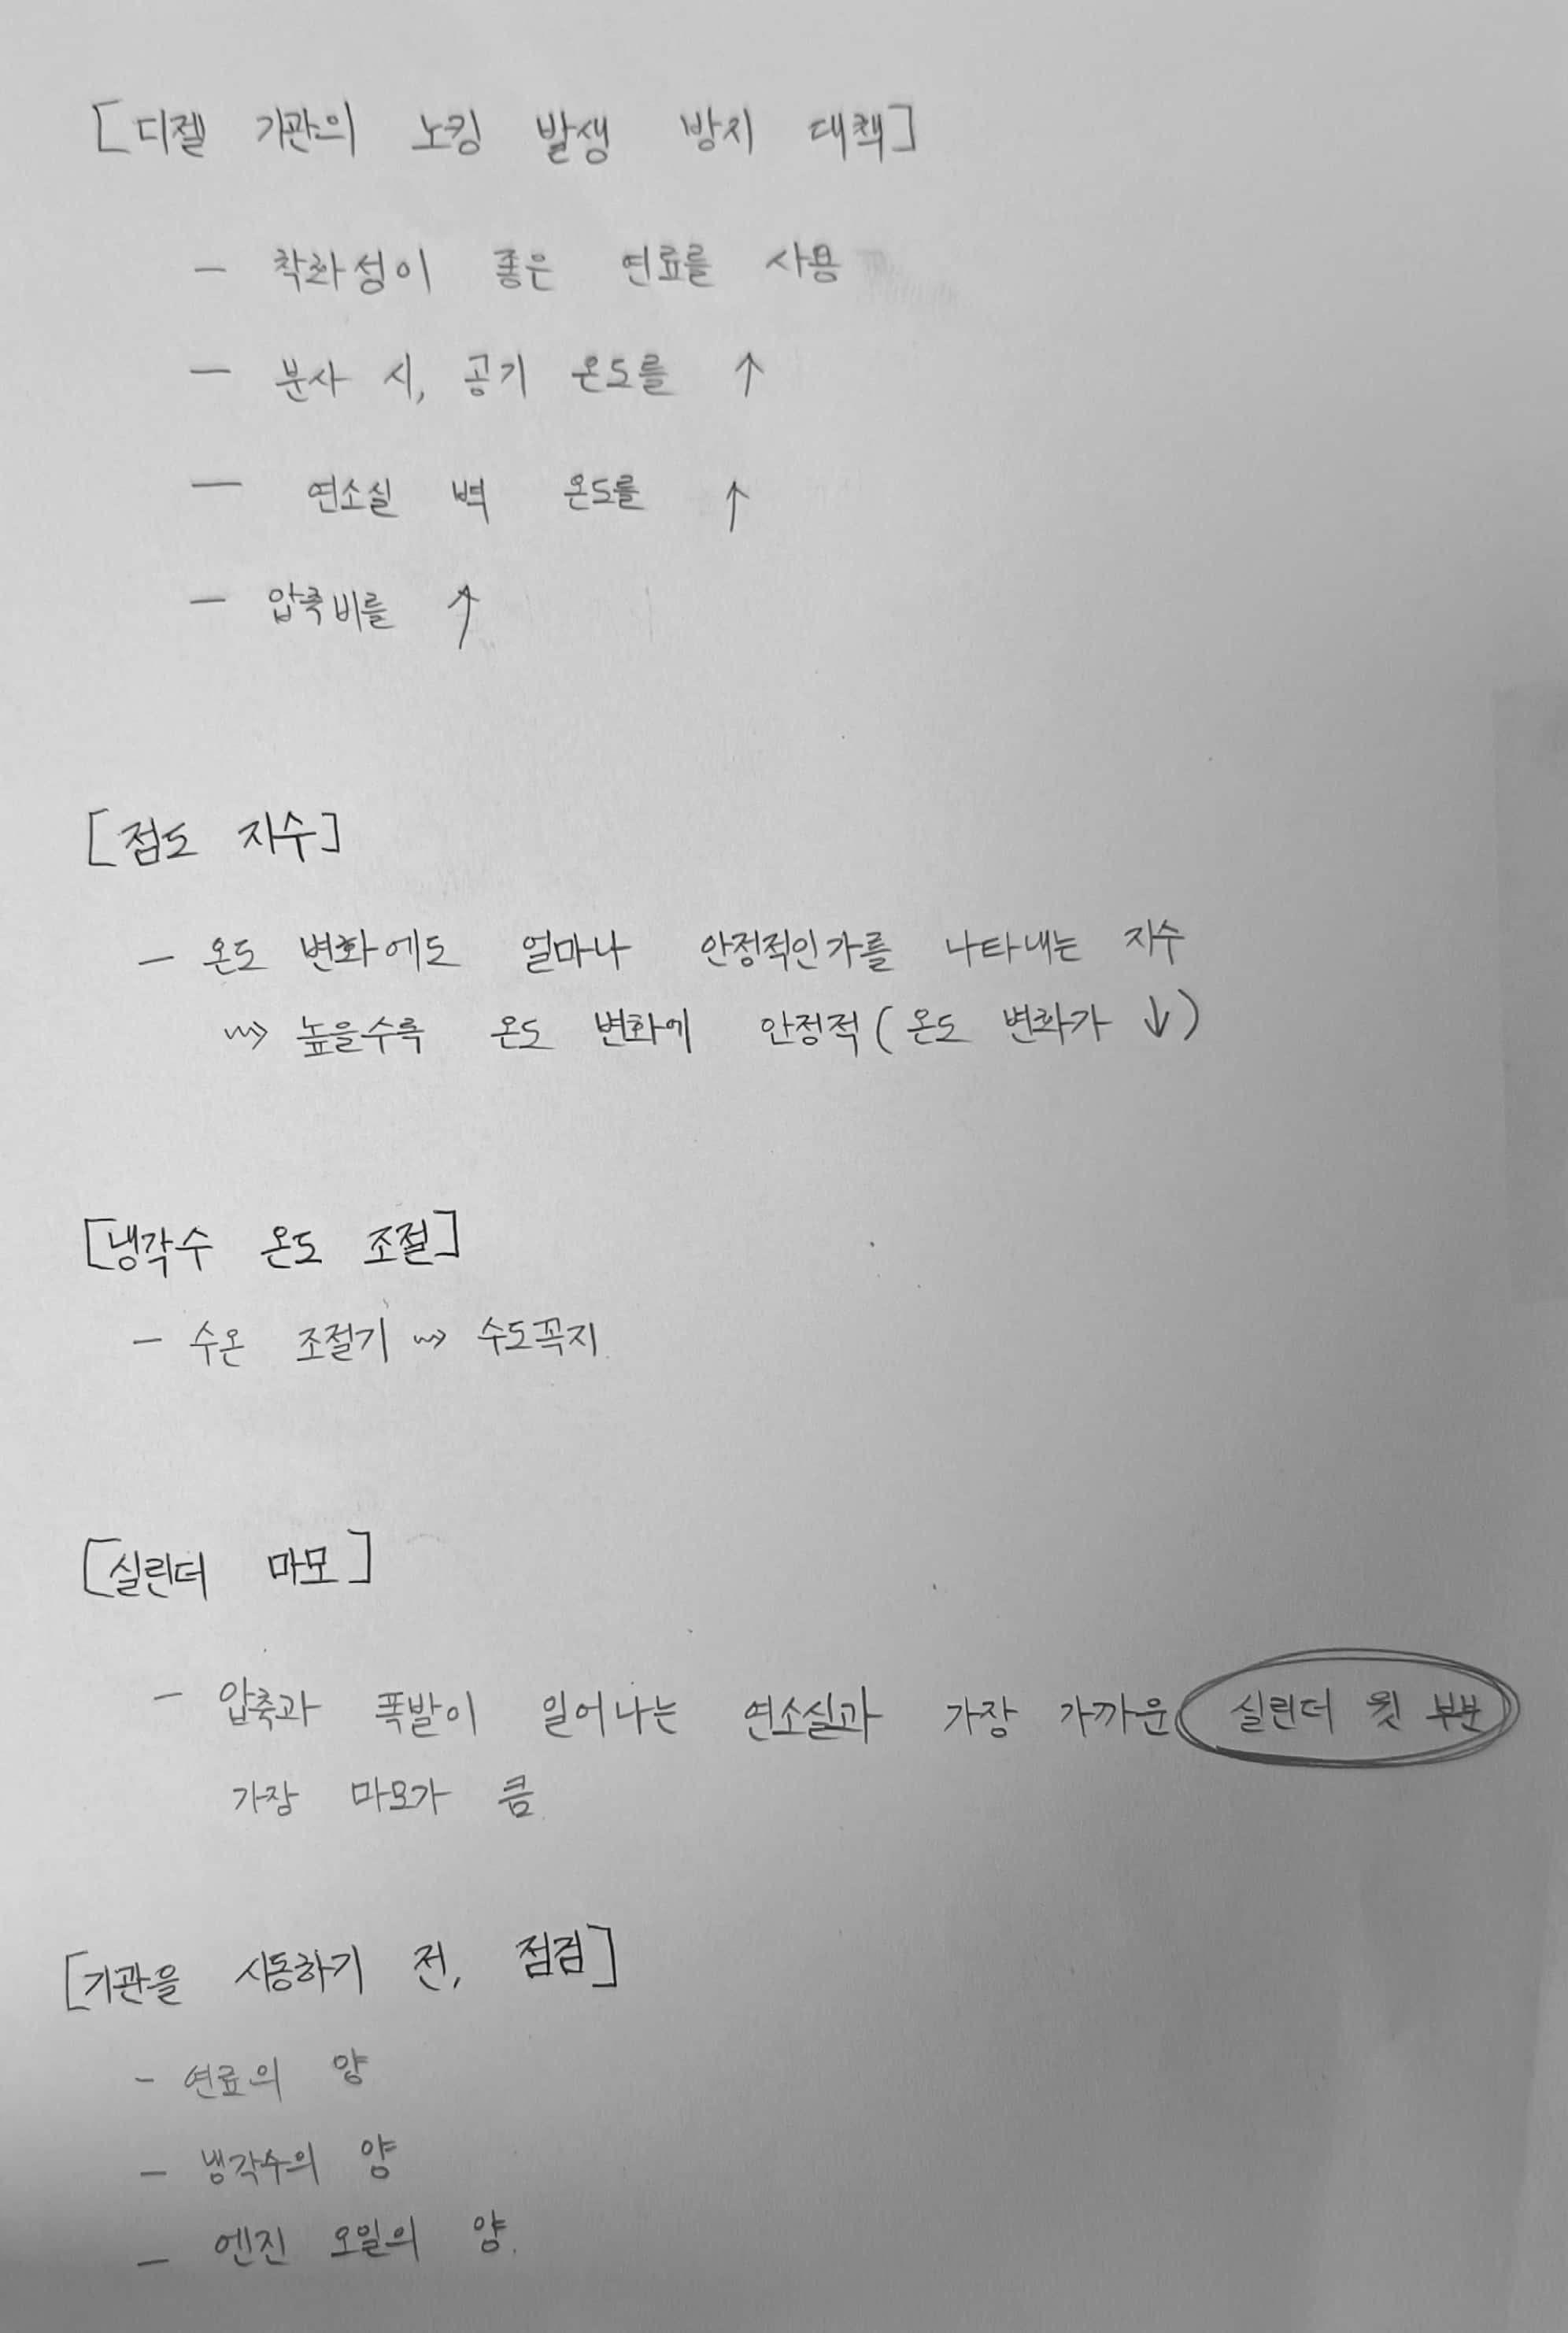 [디젤 기관의 노킹 발생 방지 대책]
- 착화성이 좋은 연료를 사용
- 분사 시, 공기 온도를 ↑
- 연소실 벽 온도를 ↑
- 압축비를 ↑
[점도 지수]
- 온도 변화에도 얼마나 안정적인가를 나타내는 지수
⇝ 높을수록 온도 변화에 안정적 (온도 변화가 ↓)
[냉각수 온도 조절]
- 수온 조절기 ⇝ 수도꼭지
[실린더 마모]
- 압축과 폭발이 일어나는 연소실과 가장 가까운 실린더 윗 부분
가장 마모가 큼.
[기관을 시동하기 전, 점검]
- 연료의 양
- 냉각수의 양
- 엔진 오일의 양.